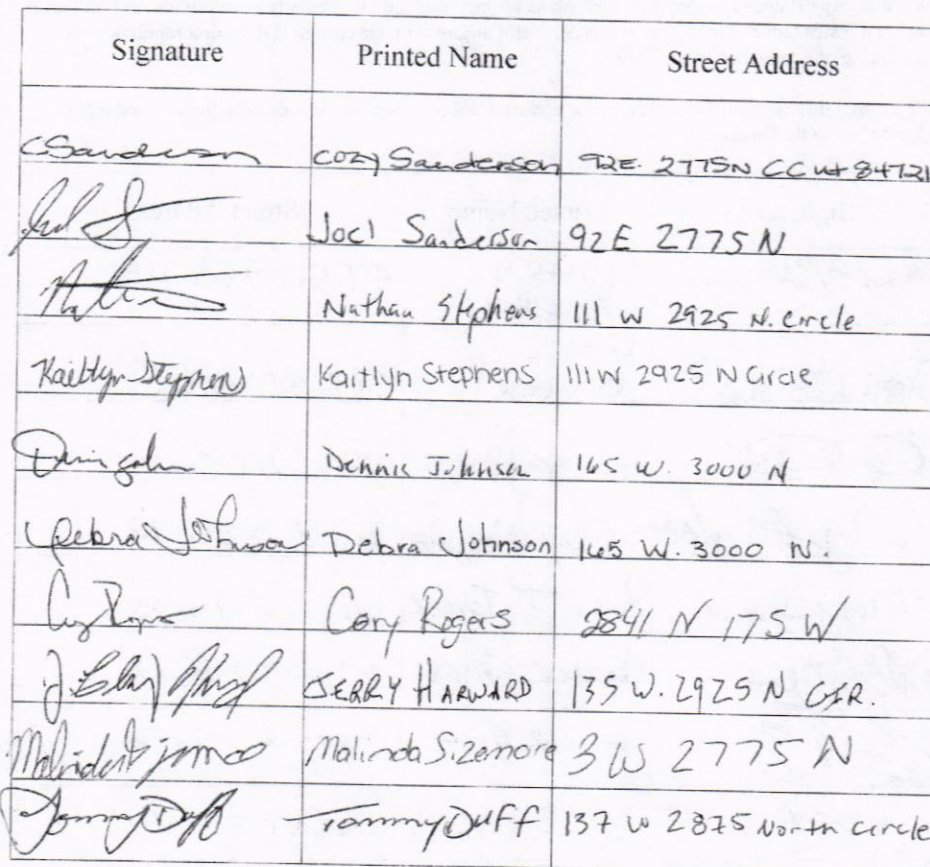 Signature Printed Name Street Address
CSanderson Cozy Sanderson 92E. 2775N CC ut 84721
Joel Sanderson 92E 2775 N
Nathan Stephens 111 W 2925 N. Circle
Kaitlyn Stephens Kaitlyn Stephens 111 W 2925 N Circle
Dennis Johnson 165 W. 3000 N
Debra Johnson Debra Johnson 165 W. 3000 N
Cory Rogers 2841 N 175 W
JERRY HARWARD 135 W. 2925 N. CIR.
Malinda Sizemore 3 W 2775 N
Tommy Duff Tommy Duff 137 W 2875 North Circle